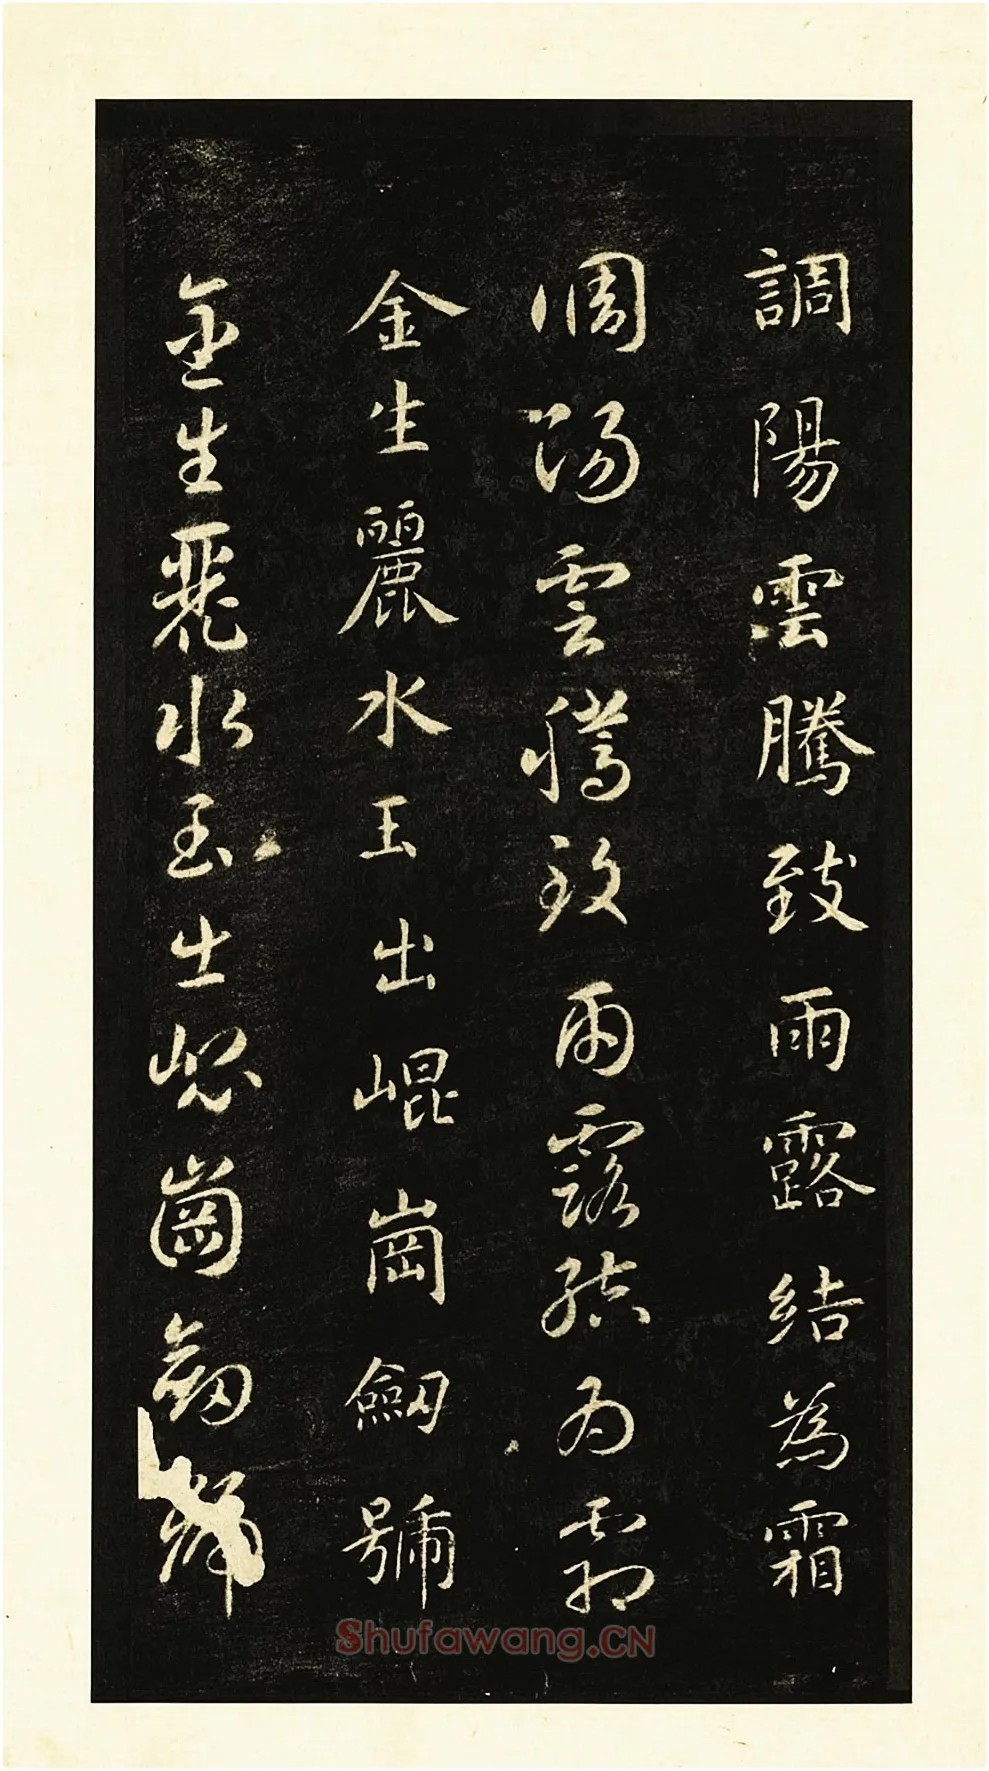 調陽雲騰致雨露結為霜
調陽雲騰致雨露結為霜
金生麗水玉出崐崗劔號
金生麗水玉出崐崗劔
Shufawang.CN